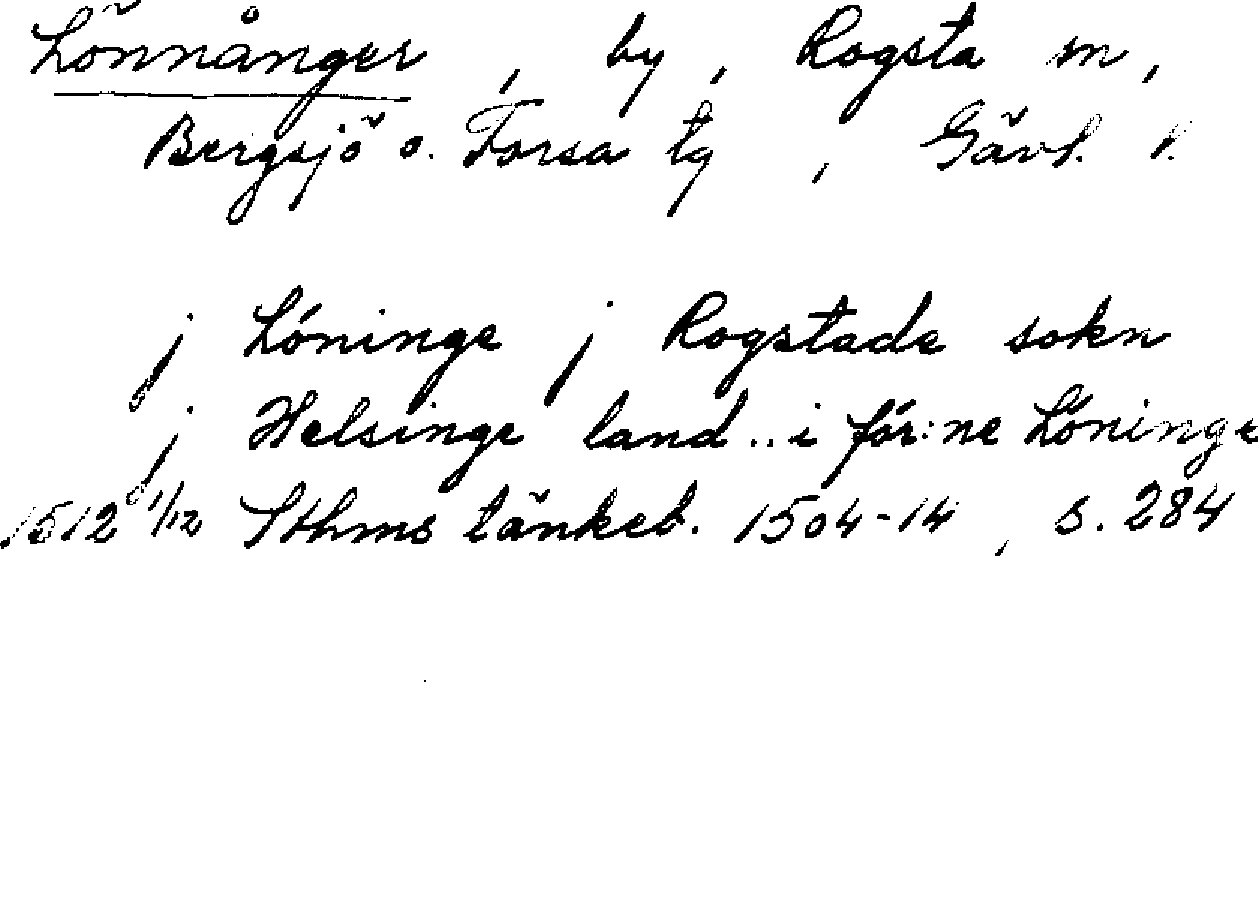 Lönnånger, by, Rogsta sn,
Bergsjö o. Forsa tg, Gävl. l.
j Lóninge j Rogstade sokn
j Helsinge land .. i fór:ne Lóninge
1512 1/12 Sthms tänkeb. 1504-14, s. 284